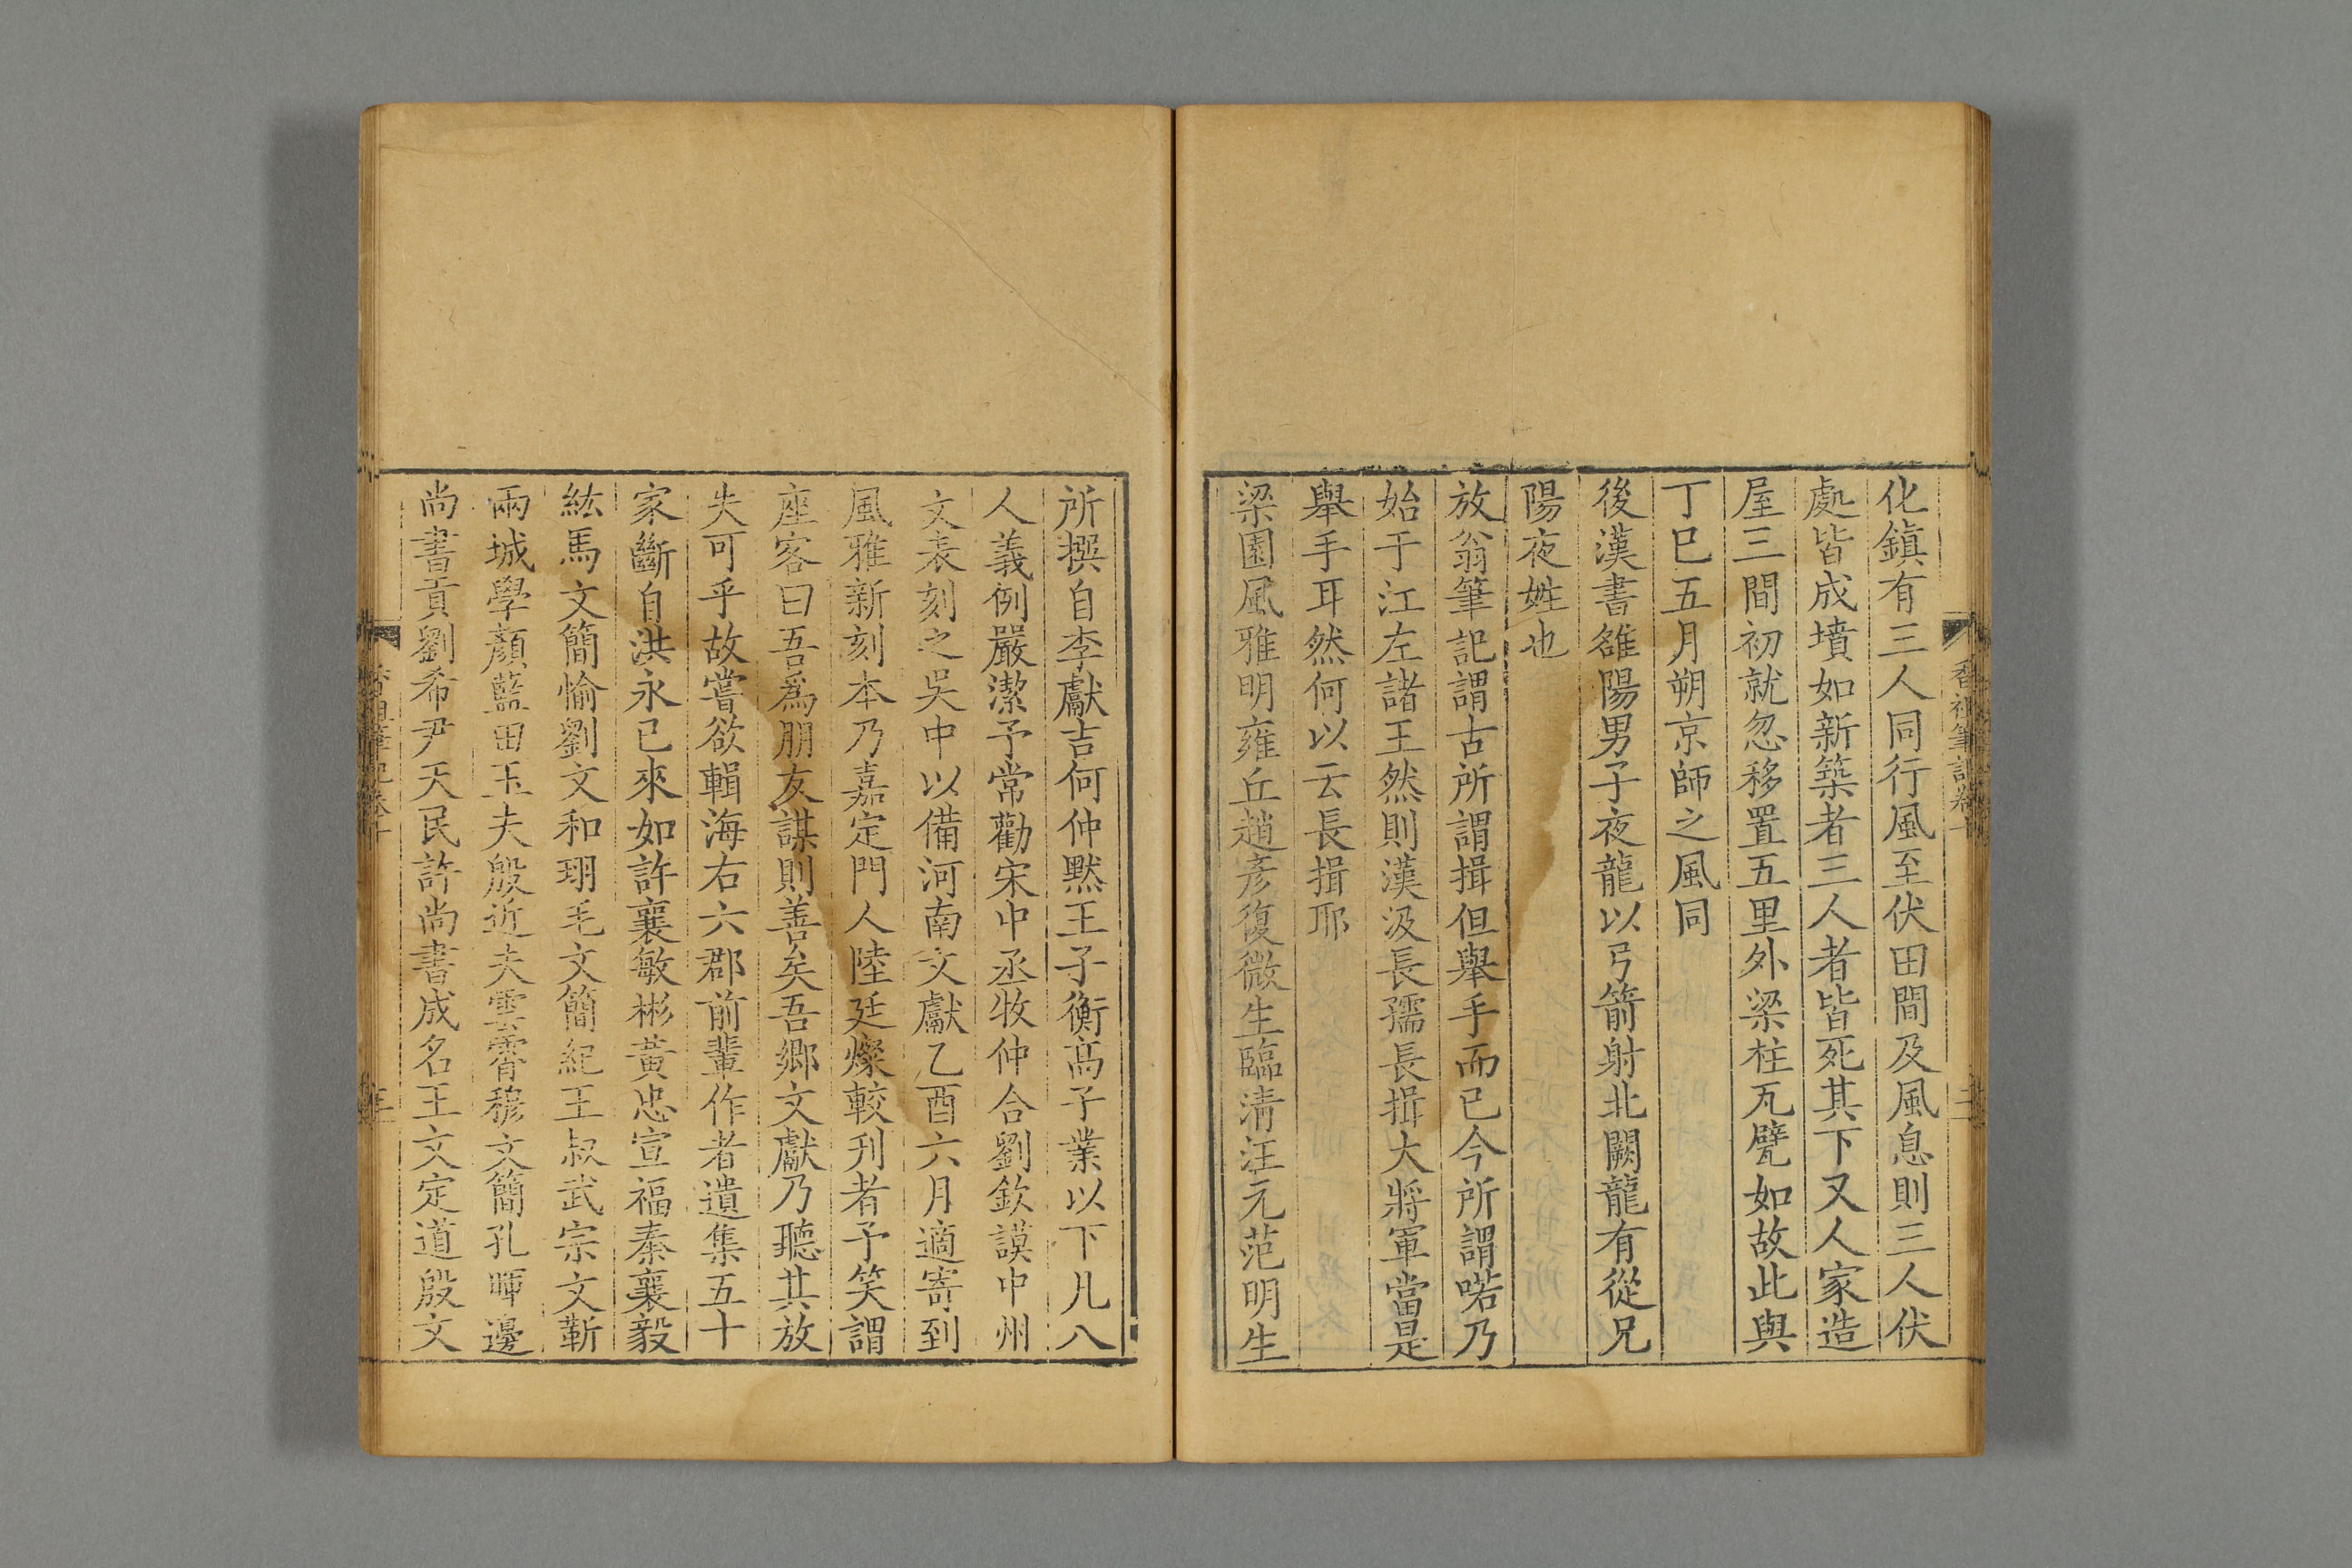 香祖筆記卷十
化鎮有三人同行風至伏田間及風息則三人伏
處皆成墳如新築者三人者皆死其下又人家造
屋三間初就忽移置五里外梁柱瓦甓如故此與
丁巳五月朔京師之風同
後漢書雒陽男子夜龍以弓箭射北闕龍有從兄
陽夜姓也
放翁筆記謂古所謂揖但舉手而已今所謂喏乃
始于江左諸王然則漢汲長孺長揖大將軍當是
舉手耳然何以云長揖耶
梁園風雅明雍丘趙彥復微生臨清汪元范明生
所撰自李獻吉何仲黙王子衡高子業以下凡八
人義例嚴潔予常勸宋中丞牧仲合劉欽謨中州
文表刻之吳中以備河南文獻乙酉六月適寄到
風雅新刻本乃嘉定門人陸廷燦較刋者予笑謂
座客曰吾為朋友謀則善矣吾鄉文獻乃聽其放
失可乎故嘗欲輯海右六郡前輩作者遺集五十
家斷自洪永已來如許襄敏彬黃忠宣福秦襄毅
紘馬文簡愉劉文和珝毛文簡紀王叔武宗文靳
兩城學顏藍田玉夫殷近夫雲霄穆文簡孔暉邊
尚書貢劉希尹天民許尚書成名王文定道殷文
香祖筆記卷十